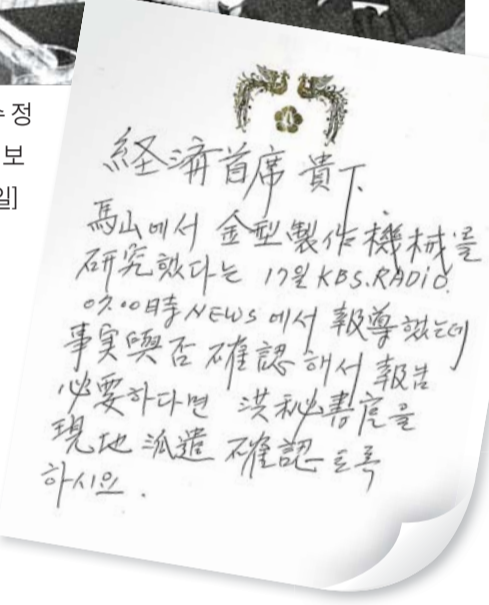 수 정
보
일]
経済首席 貴下.
馬山에서 金型製作機械를
研究했다는 17일 KBS.RADiO.
07.00時 NEWS에서 報導했는데
事実與否 確認해서 報告
必要하다면 洪秘書官을
現地派遣 確認토록
하시요.